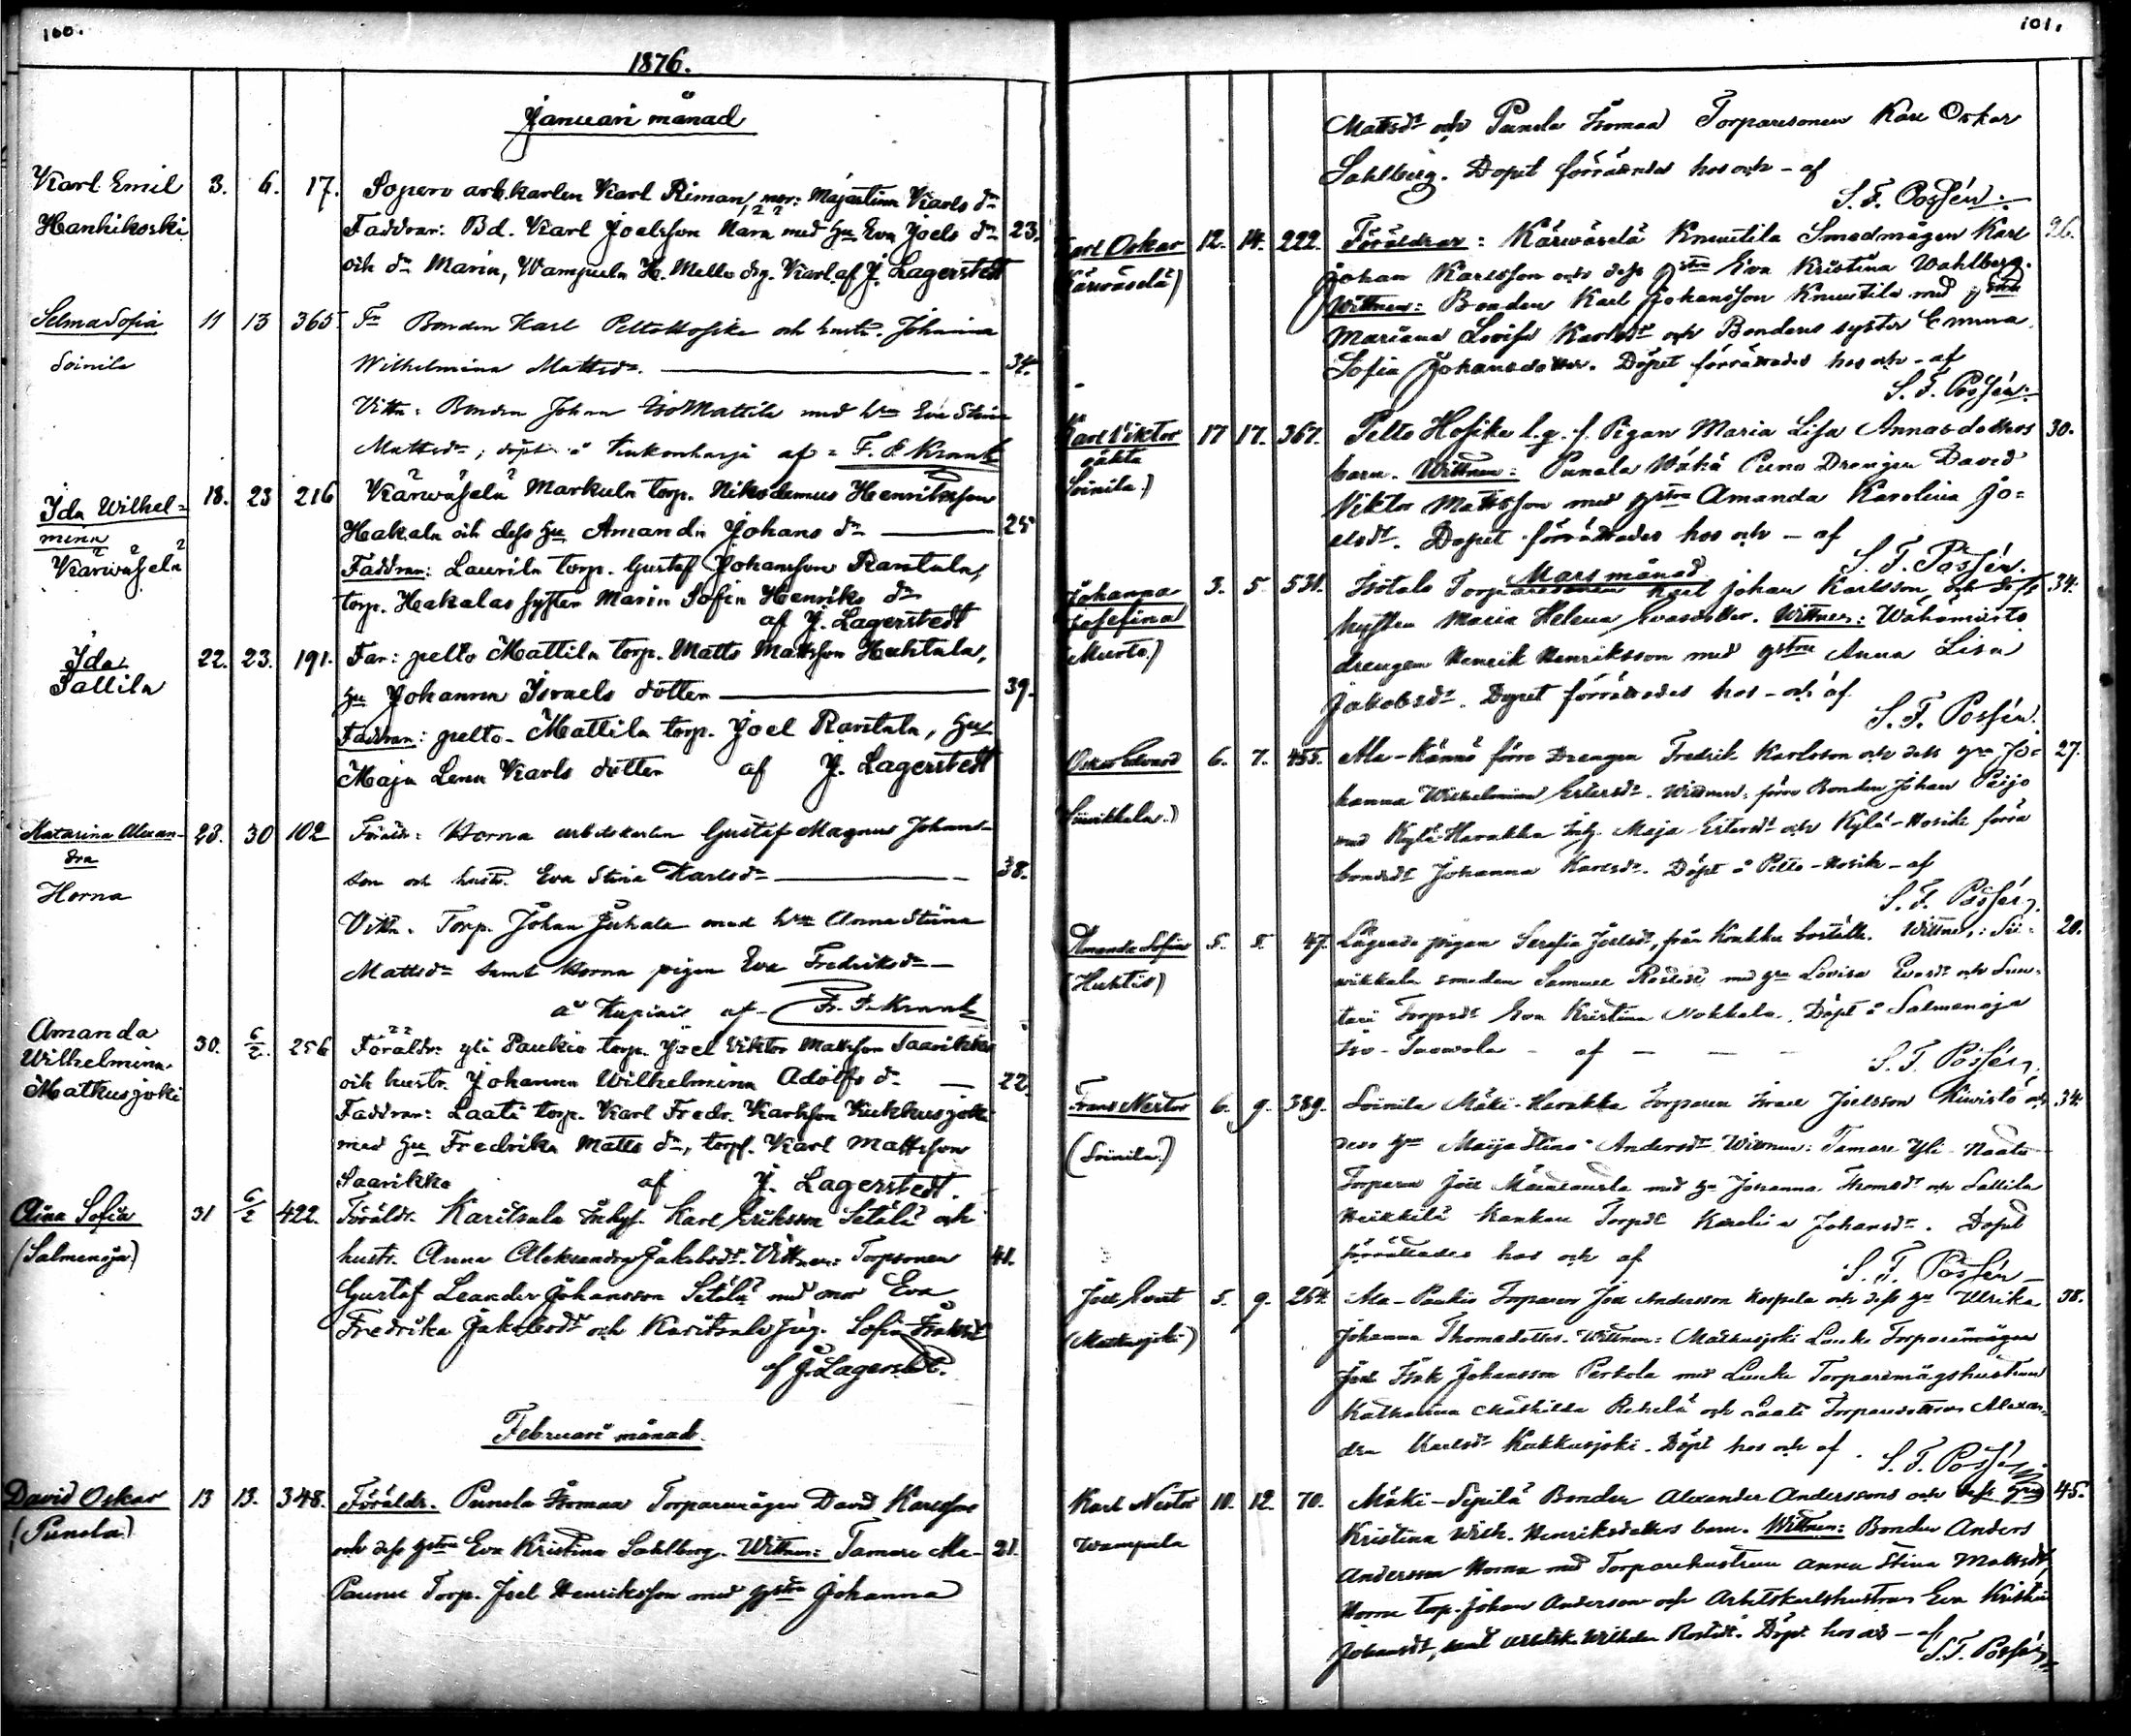 100.
1876.
Januari månad
Karl Emil 3. 6. 17. Sopero arb.karlen Karl Riman, mor: Majastina Karls dr
Hanhikoski Faddrar: Bd. Karl Joelsson Nara med hu Eva Joels dr 23.
och dr Maria, Wampula H. Mello drg. Karl af J. Lagerstedt
Selma Sofia 11 13 365. Fr Bonden Karl PeltoHosike och hustr. Johanna
Soinila Wilhelmina Mattsdr. 34.
Vittn: Bonden Johan IsoMattila med hru Eva Stina
Mattsdr; döpt å af F. E. Krank
Ida Wilhel- 18. 23 216 Kärwäselä Markula torp. Nikodemus Henriksson
mina Hakala och dess hu Amanda Johans dr 25
Kärwäselä Faddrar: Laurila torp. Gustaf Johansson Rantala,
torp. Hakalas syster Maria Sofia Henriks dr
af J. Lagerstedt
Ida 22. 23. 191. Far: pelto Mattila torp. Matts Mattsson Huhtala,
Sallila hu Johanna Israels dotter 39.
Faddrar: pelto-Mattila torp. Joel Rantala, hu
Maja Lena Karls dotter af J. Lagerstedt
Katarina Alexan- 28. 30 102 Föräldr: Horna arbetskarlen Gustaf Magnus Johans-
dra son och hustr. Eva Stina Karlsdr 38.
Horna
Vittn. Torp. Johan Juhala med hru Anna Stina
Mattsdr samt Horna pigan Eva Fredriksdr
å af Fr. E. Krank
Amanda
Wilhelmina 30. 6/2. 256 Föräldr: yli Paukio torp. Joel Viktor Mattsson Saarikko
Matkusjoki och hustr. Johanna Wilhelmina Adolfs dr 22
Faddrar: Laati torp. Karl Fredr. Karlsson Kukkusjoki
med hu Fredrika Matts dr, torps. Karl Mattsson
Saarikko af J. Lagerstedt.
Aina Sofia 31 6/2 422. Föräldr. Karitsala Inhys. Karl Eriksson Setälä och
(Salmenoja) hustr. Anna Aleksandra Jakobsdr. Vittnen: Torpsonen 41.
Gustaf Leander Johansson Setälä med mor Eva
Fredrika Jakobsdr och Karitsala pig. Sofia Isaksdr
af J. Lagerstedt.
Februari månad.
David Oskar 13 13. 348. Föräldr. Punola Isomaa Torparemågen David Karlsson
(Punola) och dess hstru Eva Kristina Sahlberg. Wittnen: Tamare Ala- 21.
Paunu Torp. Joel Henriksson med hstru Johanna
101.
Mattsdr och Punola Isomaa Torparesonen Karl Oskar
Sahlberg. Dopet förrättades hos och - af
S. F. Possén.
Karl Oskar 12. 14. 222. Föräldrar: Kärwäselä Knuutila Smedmågen Karl 26.
(Kärwäselä) Johan Karlsson och dess hstru Eva Kristina Wahlberg.
Wittnen: Bonden Karl Johansson Knuutila med hstru
Mariana Lovisa Karlsdr och Bondens syster Emma
Sofia Johansdotter. Dopet förrättades hos och - af
S. F. Possén.
Karl Viktor 17 17. 367. Pelto Hosike l.g. f. Pigan Maria Lisa Annasdotters 30.
oäkta barn. Wittnen: Punola Wähä Drengen David
(Soinila.) Viktor Mattsson med hstru Amanda Karolina Jo-
elsdr. Dopet förrättades hos och - af
S. F. Possén.
Mars månad
Johanna 3. 5. 531. Isotalo Torparesonen Karl Johan Karlsson och dess 34.
Josefina hustru Maria Helena Evasdotter. Wittnen: Wähämuisto
(Murto.) drengen Henrik Henriksson med hstru Anna Lisa
Jakobsdr. Dopet förrättades hos - och af
S. F. Possén.
Oskar Edvard 6. 7. 455. Ala-Kännö förre Drengen Fredrik Karlsson och dess hru Jo- 27.
hanna Wilhelmina Estersdr. Wittnen: förre Bonden Johan Peijo
(Suwikkala.) med Kylä-Harakka Inh. Maja Estersdr och Kylä-Hosike förra
bondedr Johanna Karlsdr. Döpt å Pelto-Hosik - af
S. F. Possén.
Amanda Sofia 5. 5. 47. Lägrade pigan Serafia Joelsdr, från Koukku boställe. Wittnen: Su- 20.
(Huhtis) wikkala smeden Samuel med hru Lovisa och Sun-
tari Torparedr Eva Kristina Nokkala. Döpt å Salmenoja
Iso-Tuowola - af
S. F. Possén.
Frans Nestor 6. 9. 389. Soinila Mäki-Harakka Torparen Israel Joelsson Kiwistö och 34.
(Soinila.) dess hru Maija Stina Andersdr. Wittnen: Tamare Yli-Naatu
Torparen Joel med hu Johanna Thomasdr och Sallila
Heikkilä Torpdr Karolina Johansdr. Dopet
förrättades hos och af
S. F. Possén
Joel Evert 5. 9. 264. Ala-Paukio Torparen Joel Andersson Korpela och dess hu Ulrika 38.
(Matkusjoki) Johanna Thomasdotter. Wittnen: Matkusjoki Torparemågen
Joel Isak Johansson Perkola med Torparemågshustrun
Katharina Mathilda och Laati Torparedottren Alexan-
dra Karlsdr Kukkusjoki. Döpt hos och af.
S. F. Possén
Karl Nestor 10. 12. 70. Mäki-Sepilä Bonden Alexander Anderssons och dess hrus 45.
Wampula Kristina Wilh. Henriksdotters barn. Wittnen: Bonden Anders
Andersson Horna med Torparehustrun Anna Stina Mattsdr,
Horna torp. Johan Andersson och Arbetskarlshustrun Eva Kristin
Johansdr, samt Arbetsk. Wilhelm Döpt hos och - af
S. F. Possén